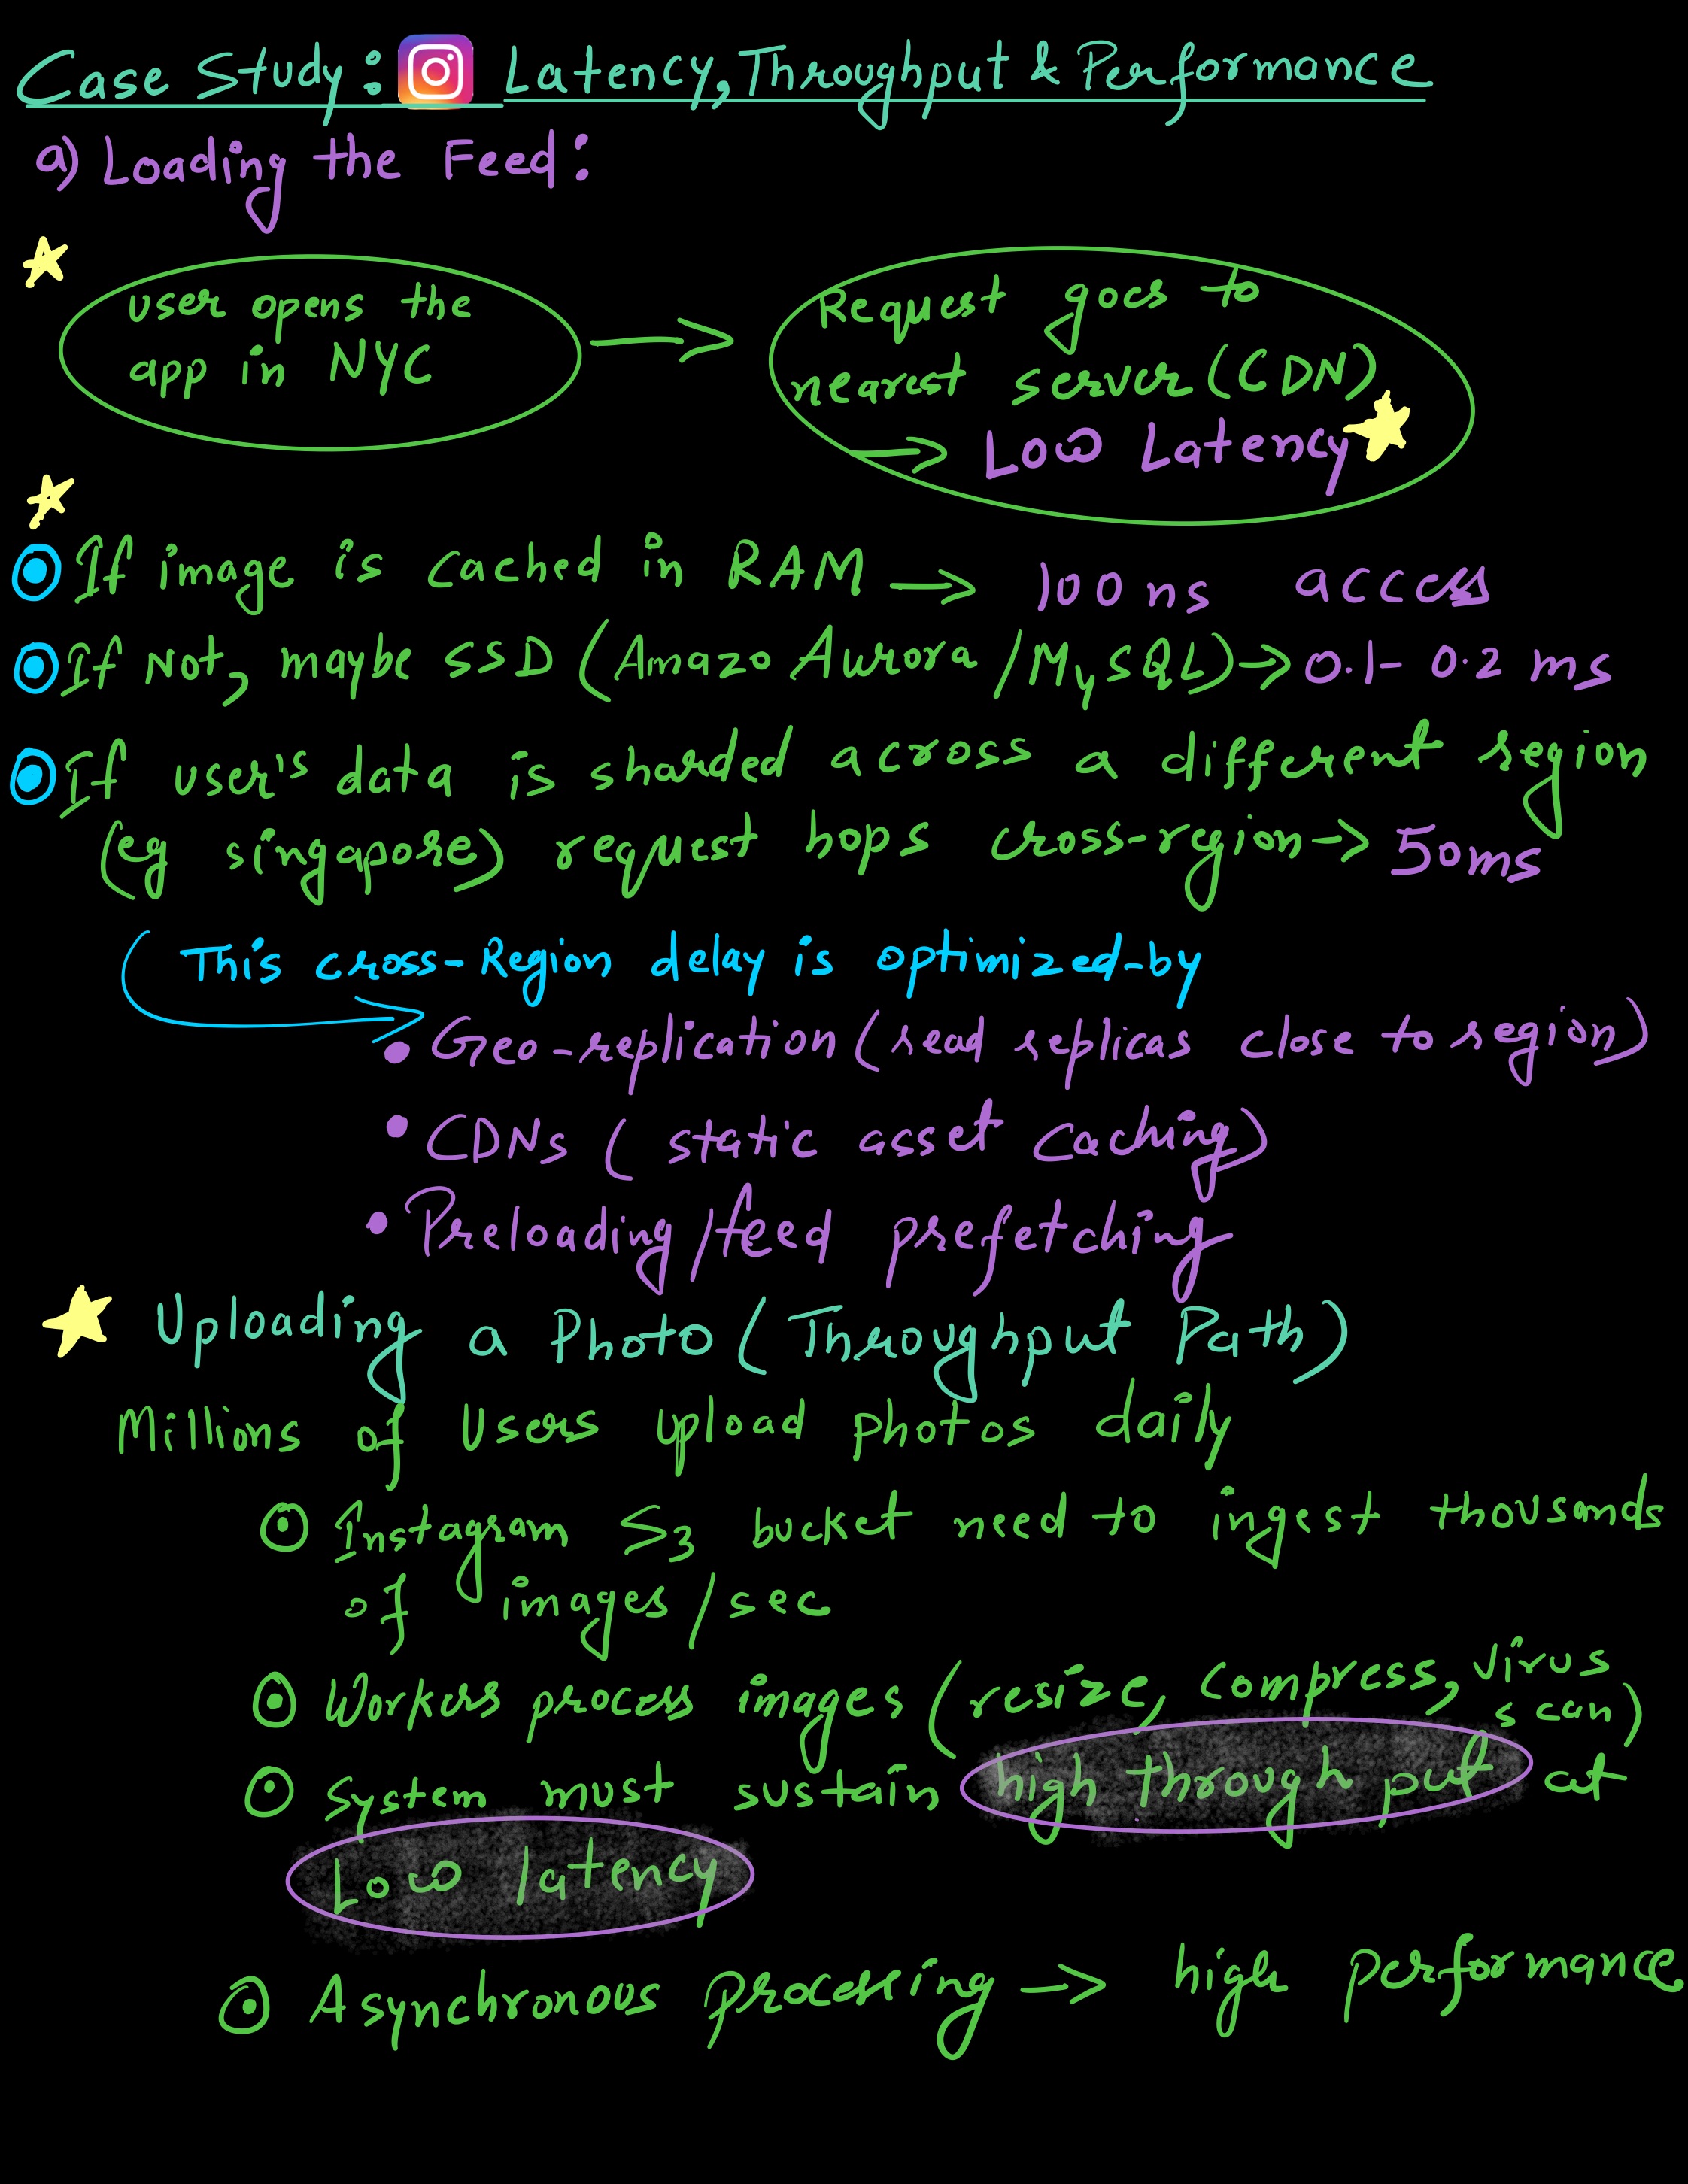 Case Study: Latency, Throughput & Performance
a) Loading the Feed:
user opens the
app in NYC
Request goes to
nearest server (CDN)
→ Low Latency
If image is cached in RAM → 100 ns access
If Not, maybe SSD (Amazo Aurora / MySQL) → 0.1 - 0.2 ms
If user's data is sharded across a different region
(eg singapore) request hops cross-region → 50ms
This cross-Region delay is optimized-by
• Geo-replication (read replicas close to region)
• CDNs ( static asset caching)
• Preloading/feed prefetching
Uploading a Photo (Throughput Path)
Millions of Users upload photos daily
Instagram S3 bucket need to ingest thousands
of images/sec
Workers process images (resize, compress, virus
scan)
System must sustain high through put at
Low latency
Asynchronous processing → high performance